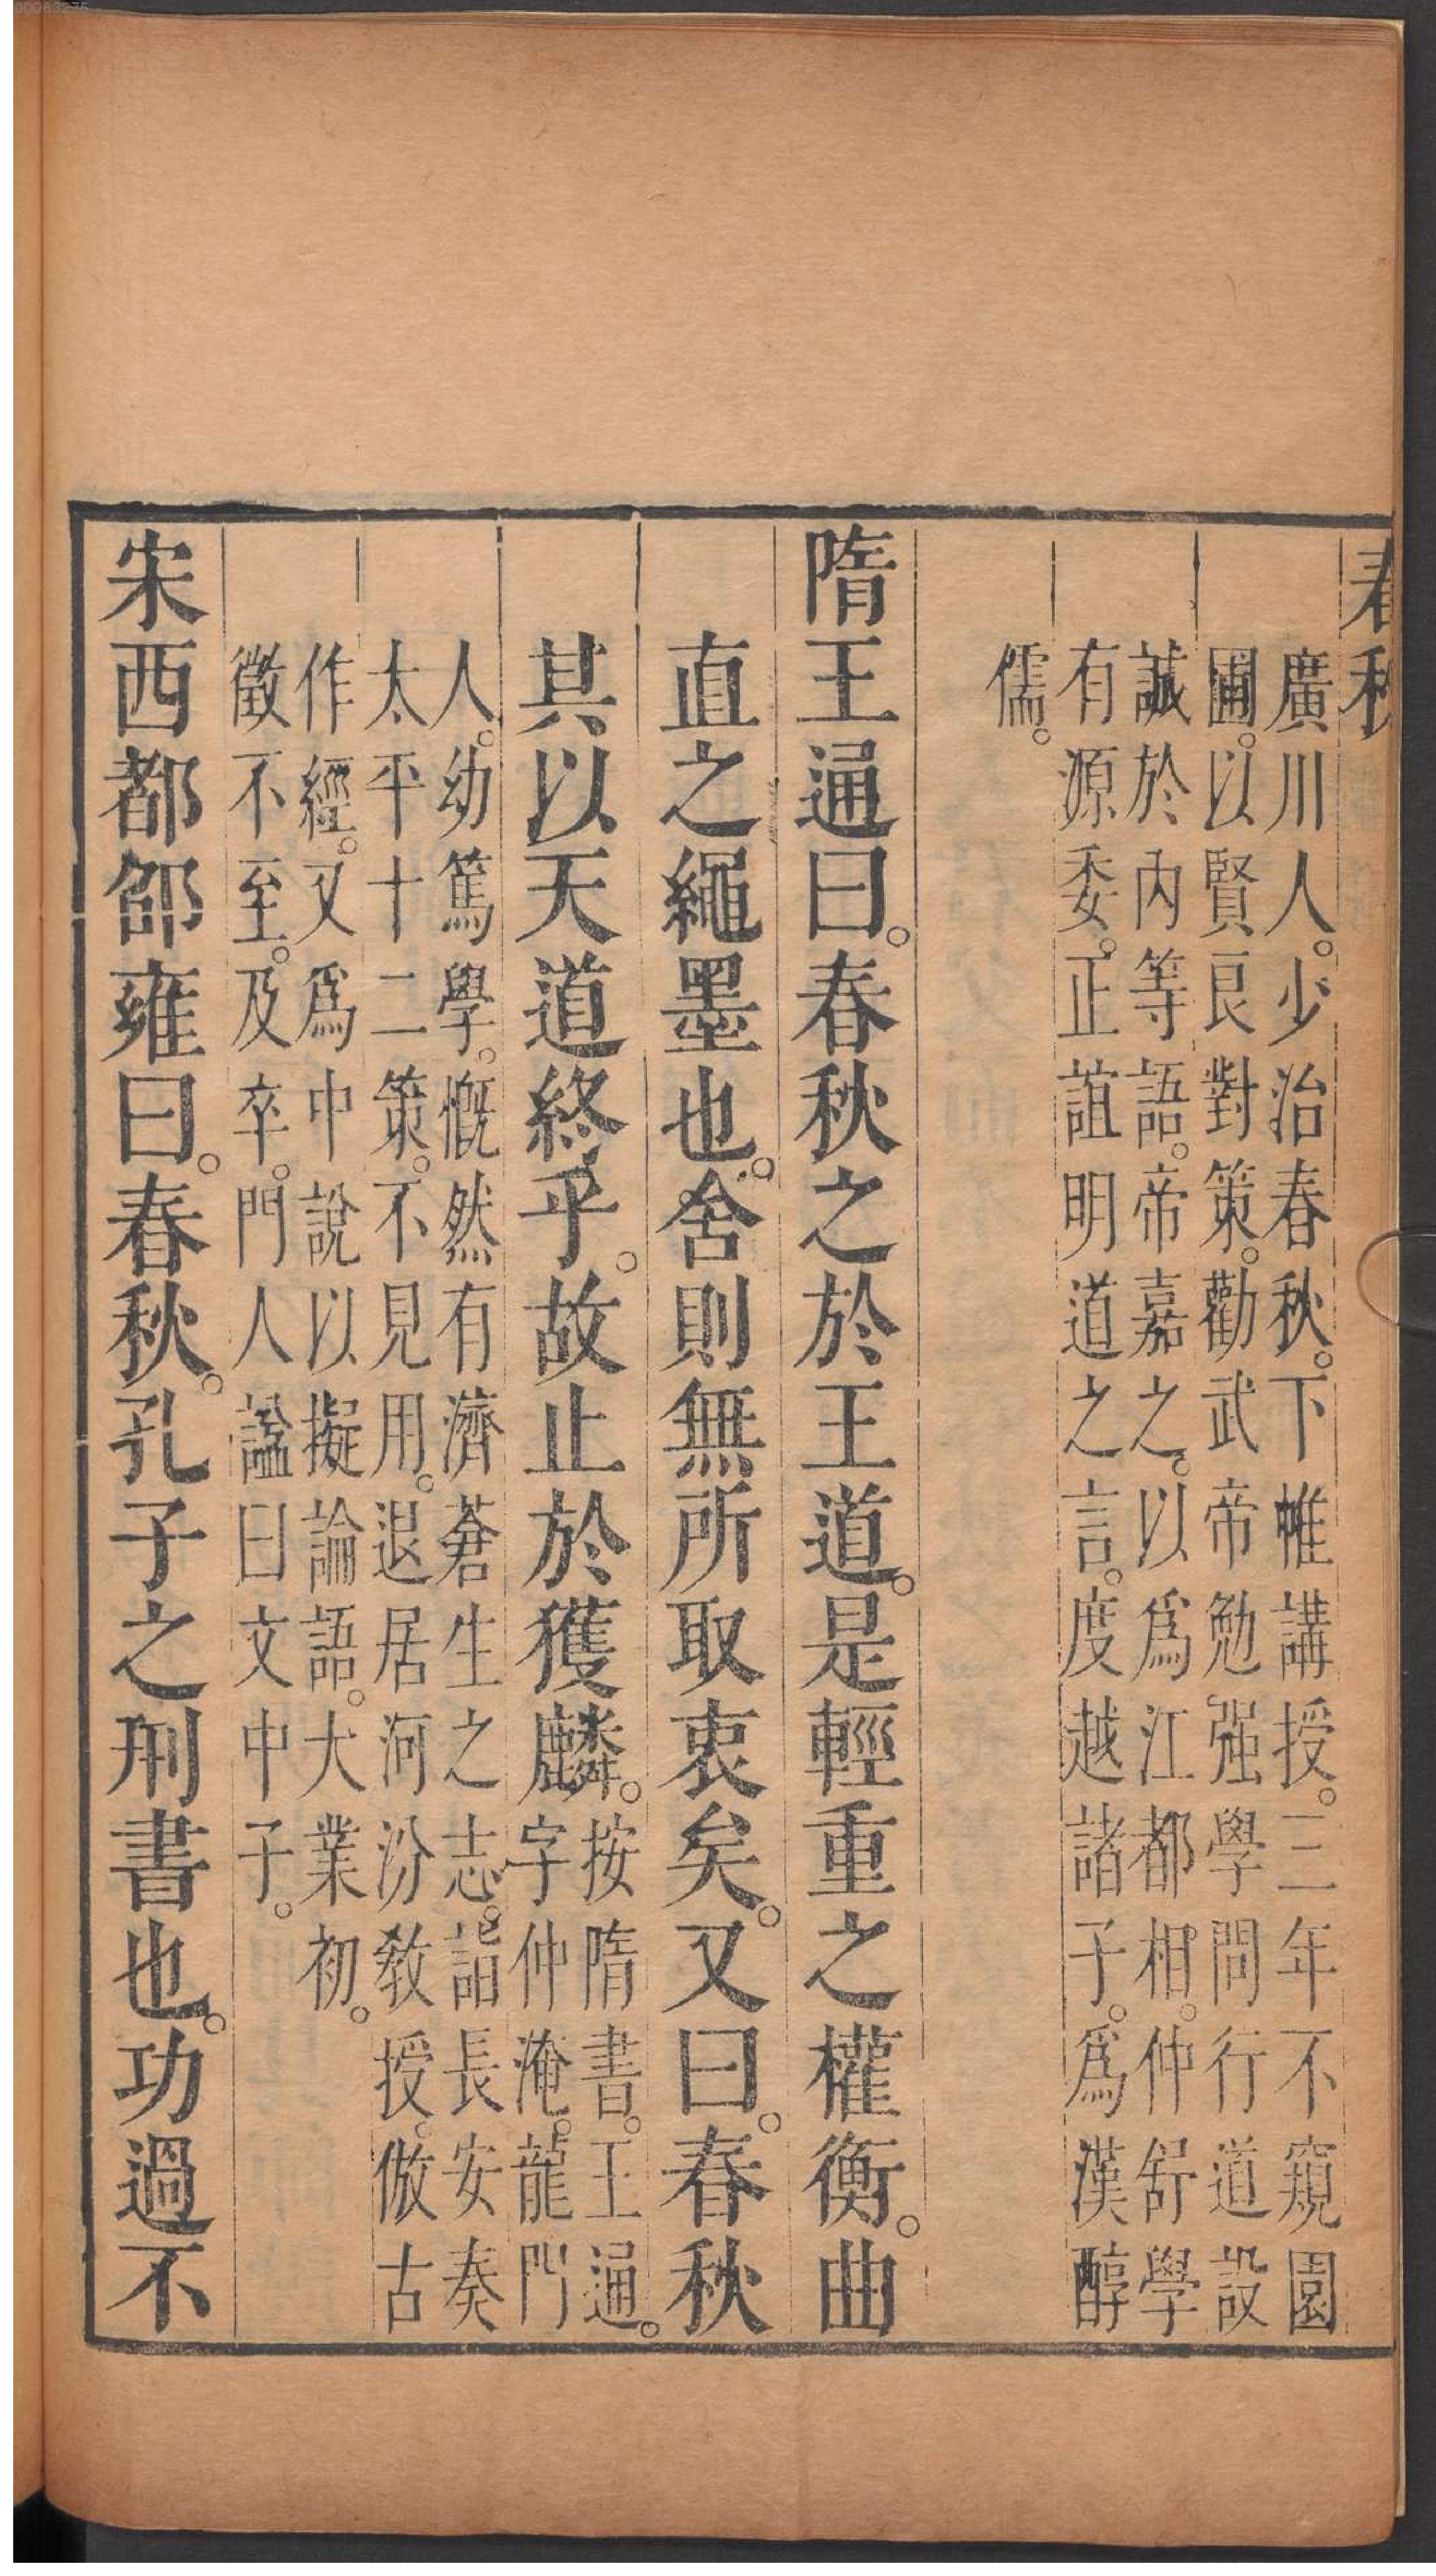 春秋
廣川人。少治春秋。下帷講授。三年不窺園
圃。以賢良對策。勸武帝勉强學問行道設
誠於內等語。帝嘉之。以爲江都相。仲舒學
有源委。正誼明道之言。度越諸子。爲漢醇
儒。
隋王通曰。春秋之於王道。是輕重之權衡。曲
直之繩墨也。舍則無所取衷矣。又曰。春秋
其以天道終乎。故止於獲麟。按隋書。王通。
字仲淹。龍門
人。幼篤學。慨然有濟蒼生之志。詣長安奏
太平十二策。不見用。退居河汾教授。倣古
作經。又爲中說以擬論語。大業初。
徵不至。及卒。門人諡曰文中子。
宋西都邵雍曰。春秋。孔子之刑書也。功過不